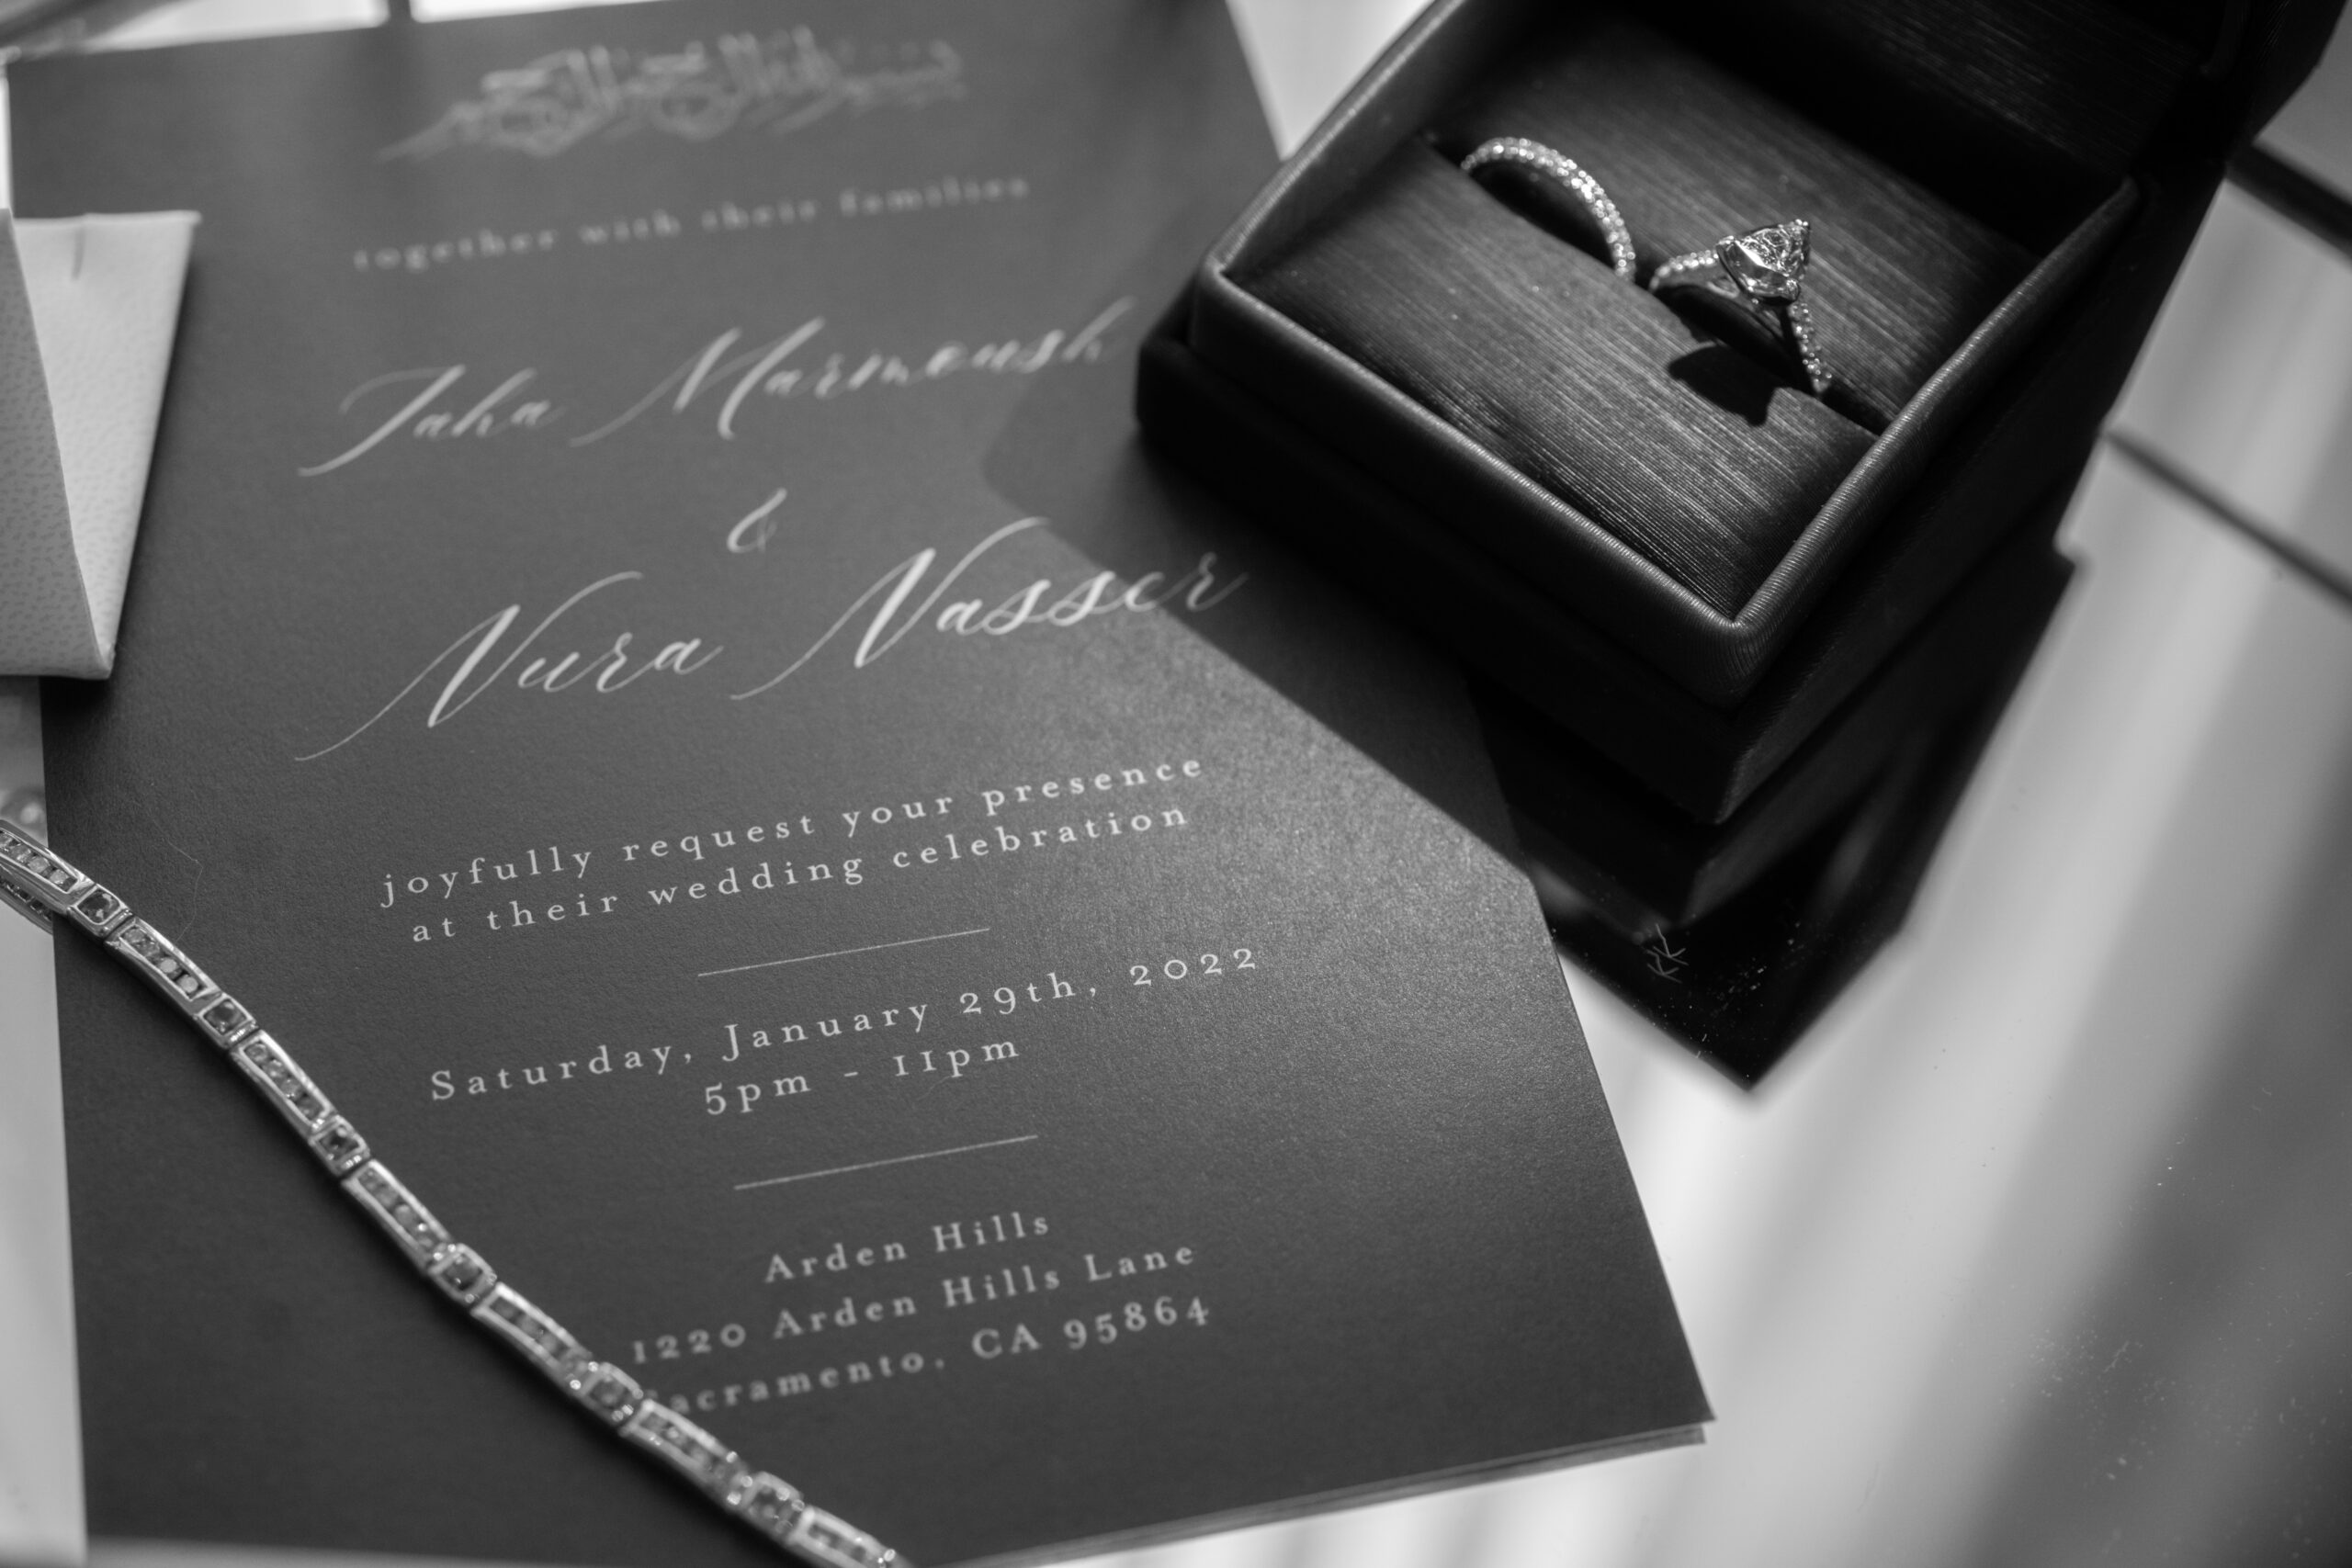 together with their families
Jaha Marmoush
&
Nura Nasser
joyfully request your presence
at their wedding celebration
Saturday, January 29th, 2022
5pm - 11pm
Arden Hills
1220 Arden Hills Lane
Sacramento, CA 95864